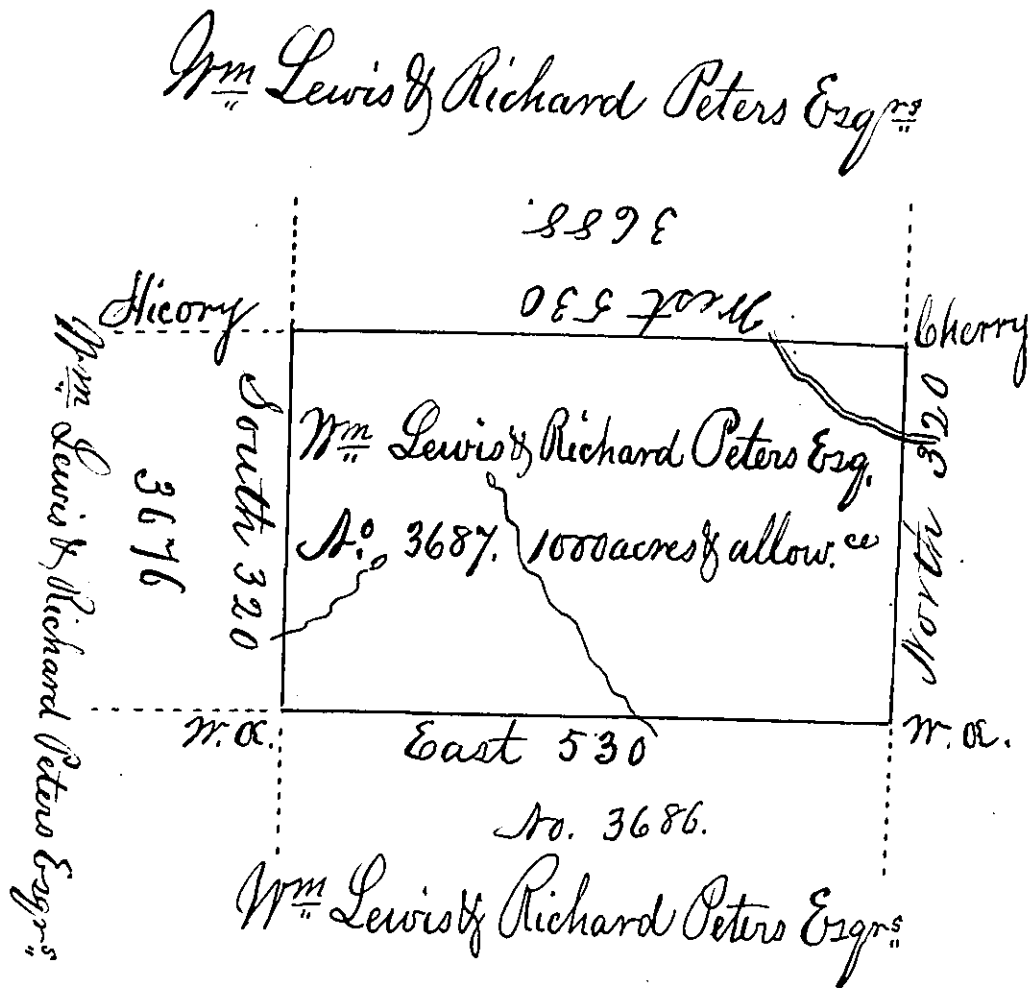 Wm Lewis & Richard Peters Esqrs
3688.
West 530
Hicory
Cherry
Wm Lewis & Richard Peters Esqrs
3676
South 320
Wm Lewis & Richard Peters Esq.
No. 3687. 1000 acres & allow.ce
North 320
W. O.
East 530
W. O.
No. 3686.
Wm Lewis & Richard Peters Esqrs